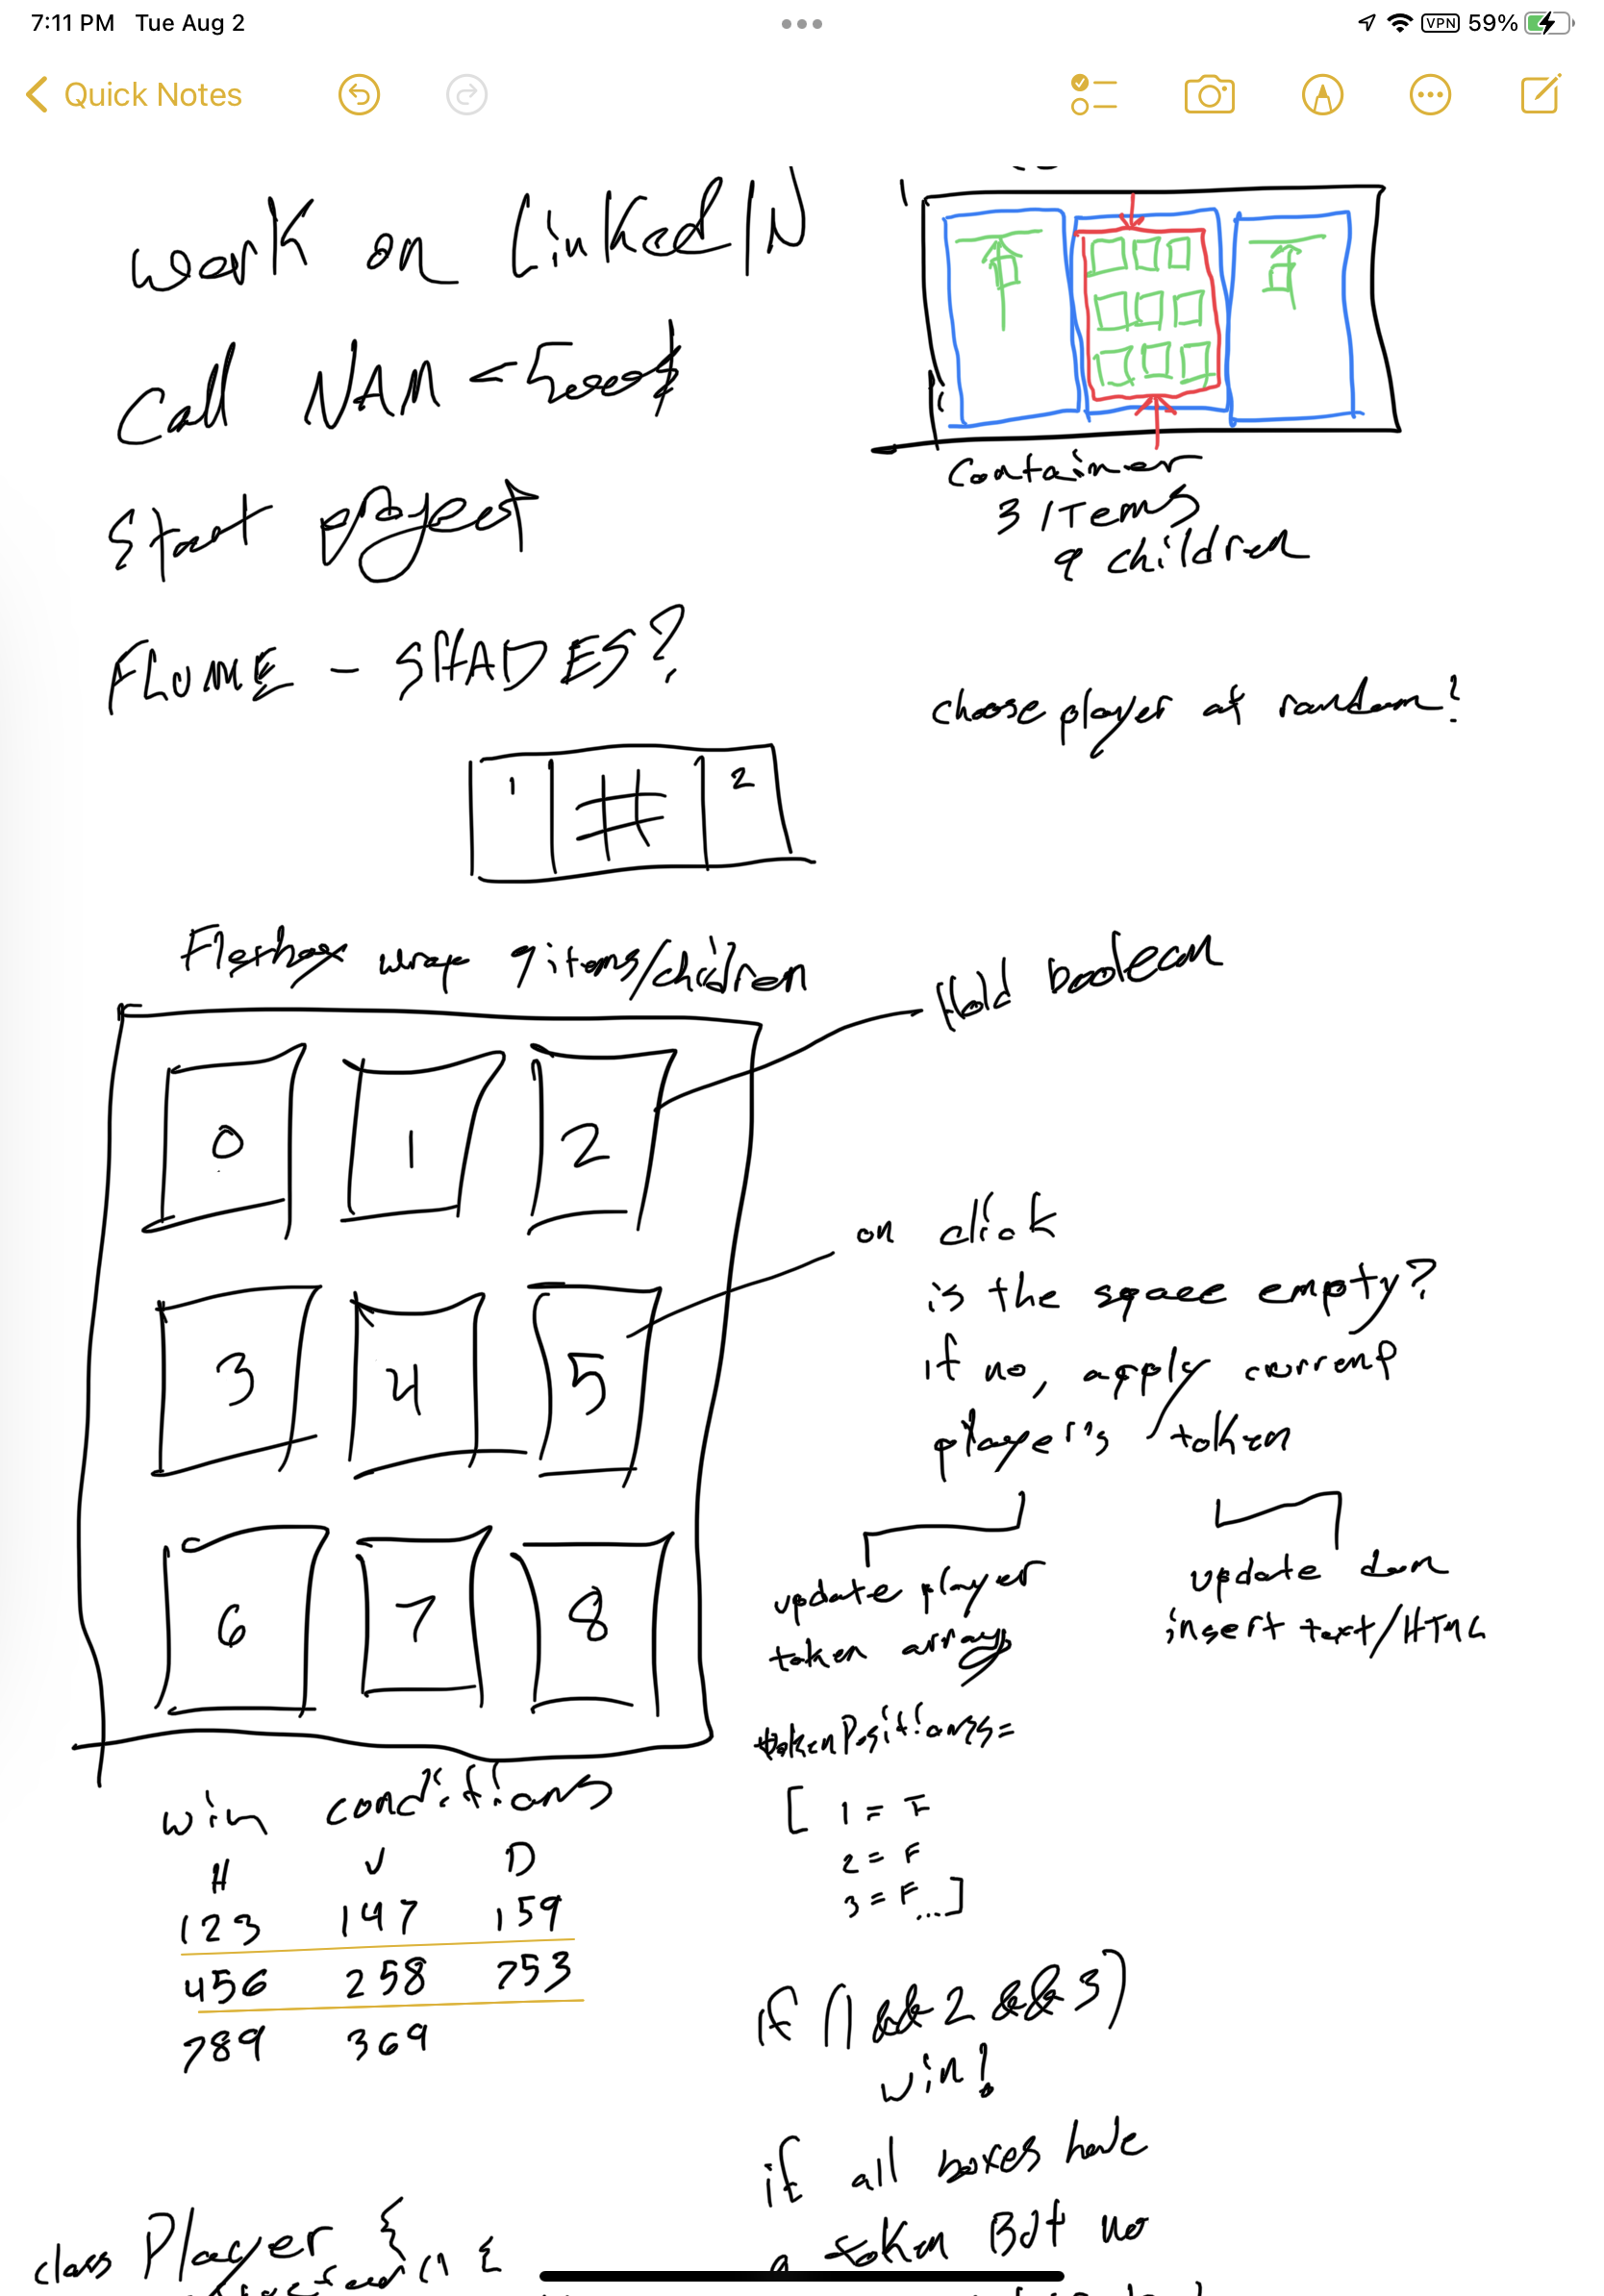 7:11 PM Tue Aug 2
VPN 59%
Quick Notes
work on LinkedIN
Call NAM - 5000$
Start project
FLUME - SHADES?
Container
3 ITems
9 children
choose player at random?
1 # 2
Flexbox wrap 9 items/children
Hold boolean
0 1 2
on click
is the space empty?
if no, apply current
player's token
3 4 5
6 7 8
update player
token array
update dom
insert text/HTML
tokenPositions=
[ 1 = F
2 = F
3 = F ...]
win conditions
H V D
123 147 159
456 258 753
789 369
if (1 && 2 && 3)
win!
if all boxes have
a token BUt no
class Player {